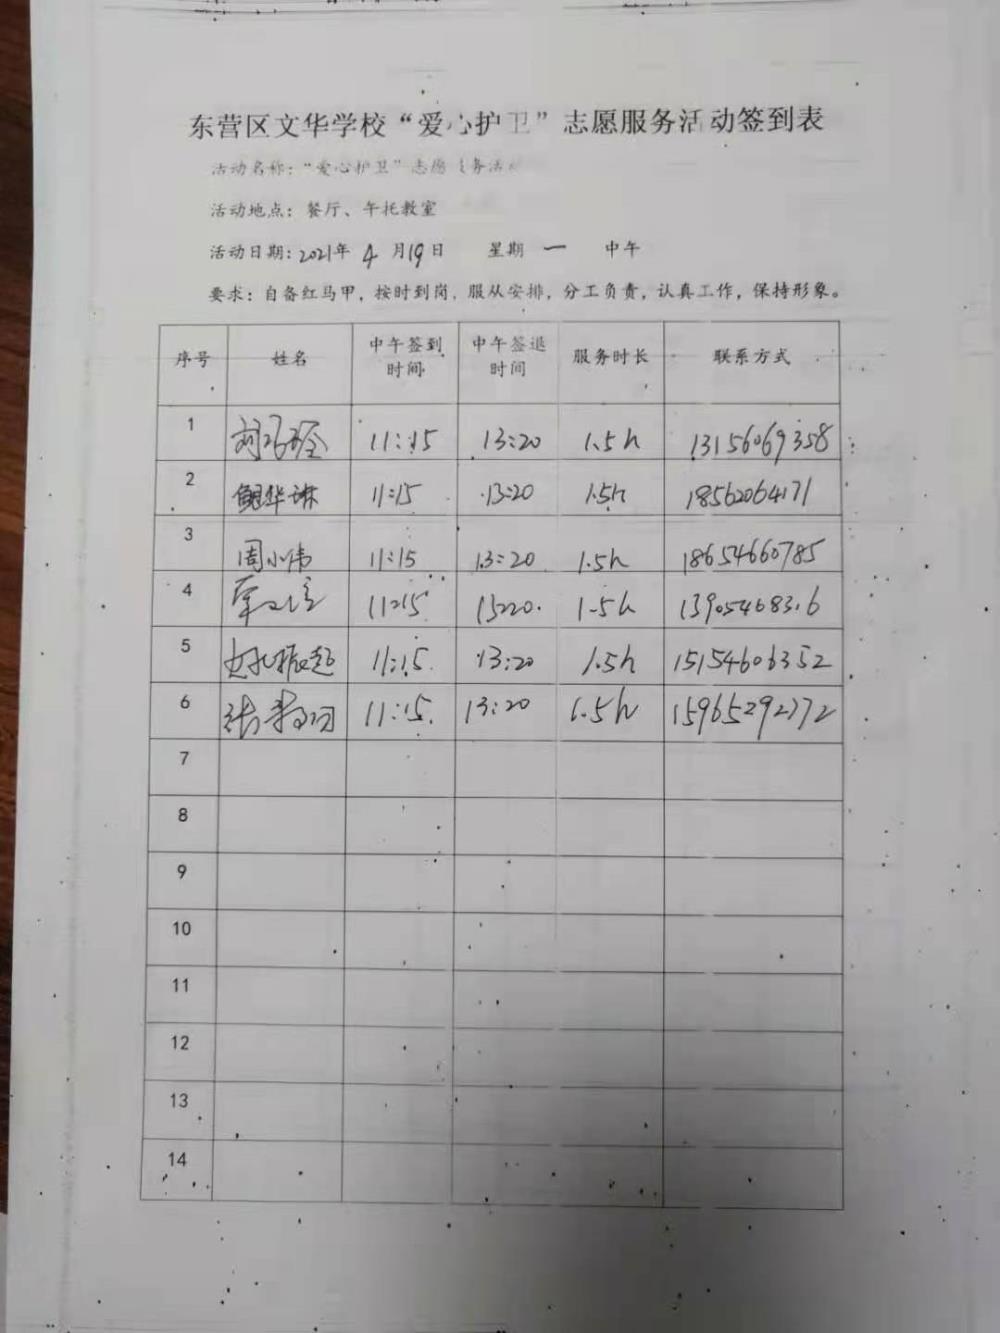 东营区文华学校“爱心护卫”志愿服务活动签到表
活动名称：“爱心护卫”志愿服务活动
活动地点：餐厅、午托教室
活动日期：2021年4月19日 星期一 中午
要求：自备红马甲，按时到岗，服从安排，分工负责，认真工作，保持形象。
序号 姓名 中午签到时间 中午签退时间 服务时长 联系方式
1 11:15 13:20 1.5h 13156069358
2 鲍华琳 11:15 13:20 1.5h 18562064171
3 周小伟 11:15 13:20 1.5h 18654660785
4 11:15 13:20 1.5h
5 赵振起 11:15 13:20 1.5h 15154606352
6 11:15 13:20 1.5h 15965292772
7
8
9
10
11
12
13
14